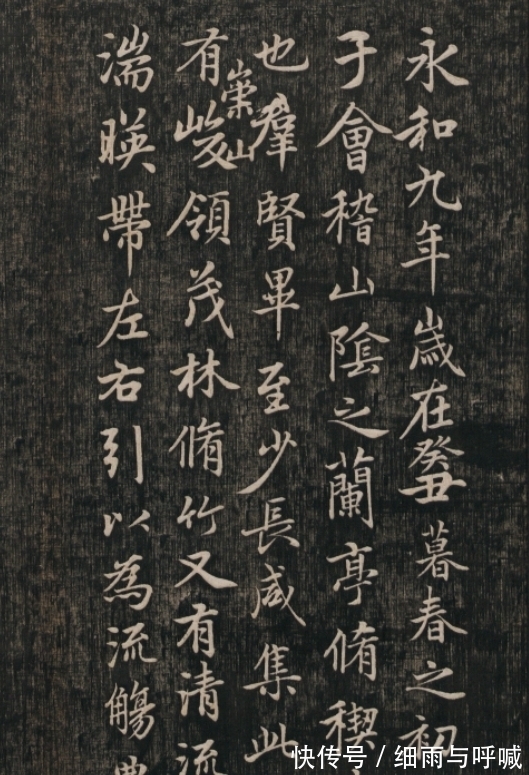 永和九年歲在癸丑暮春之初
于會稽山陰之蘭亭脩稧
也羣賢畢至少長咸集此
崇山
有峻領茂林脩竹又有清流
湍暎帶左右引以為流觴
快传号 / 细雨与呼喊